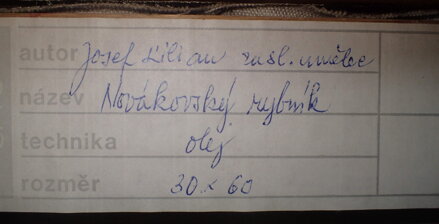 autor Josef Kilian zasl. umělec
název Novákovský rybník
technika olej
rozměr 30 x 60